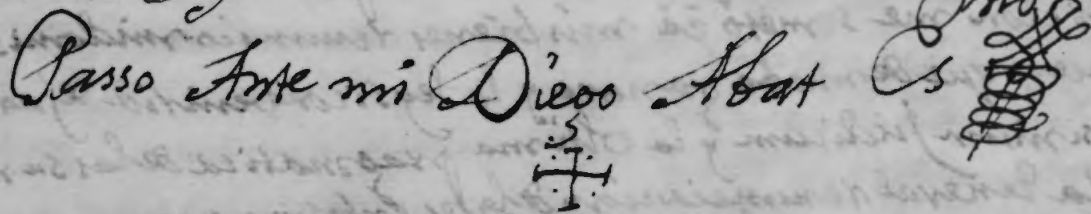 Passo Ante mi Diego Abat Es